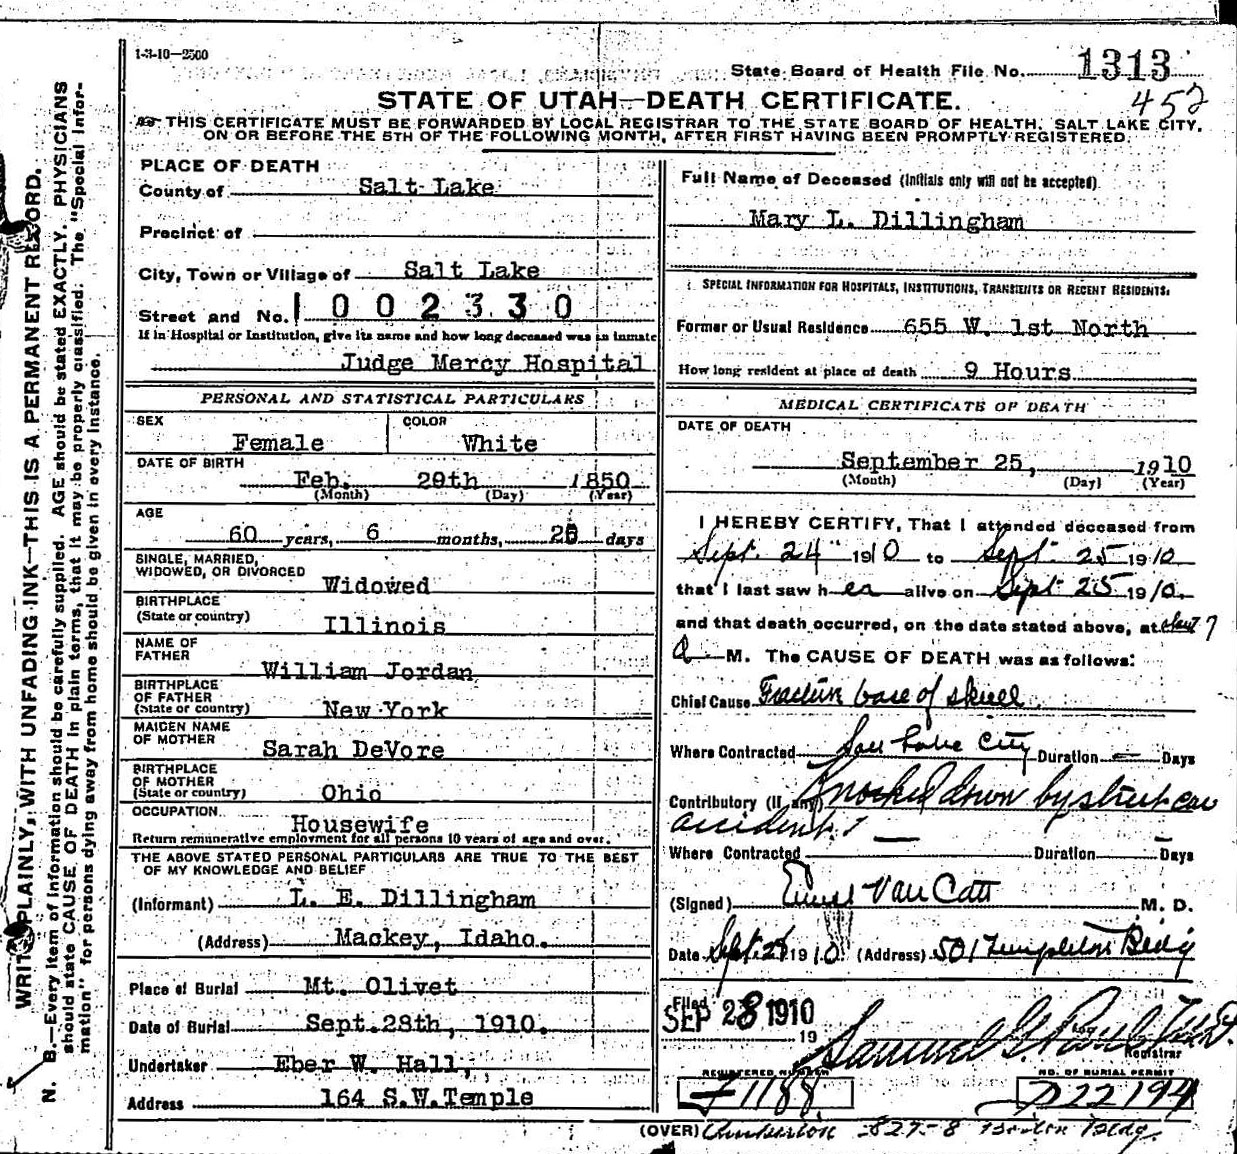 1-3-10—2500
State Board of Health File No. 1313
452
STATE OF UTAH—DEATH CERTIFICATE.
THIS CERTIFICATE MUST BE FORWARDED BY LOCAL REGISTRAR TO THE STATE BOARD OF HEALTH, SALT LAKE CITY,
ON OR BEFORE THE 5TH OF THE FOLLOWING MONTH, AFTER FIRST HAVING BEEN PROMPTLY REGISTERED.
WRITE PLAINLY, WITH UNFADING INK—THIS IS A PERMANENT RECORD.
N. B.—Every item of information should be carefully supplied. AGE should be stated EXACTLY. PHYSICIANS
should state CAUSE OF DEATH in plain terms, that it may be properly classified. The "Special Infor-
mation" for persons dying away from home should be given in every instance.
PLACE OF DEATH
County of Salt Lake
Precinct of
City, Town or Village of Salt Lake
Street and No. 1002330
If in Hospital or Institution, give its name and how long deceased was an inmate
Judge Mercy Hospital
PERSONAL AND STATISTICAL PARTICULARS
SEX
Female
COLOR
White
DATE OF BIRTH
Feb. 29th 1850
(Month) (Day) (Year)
AGE
60 years, 6 months, days
SINGLE, MARRIED,
WIDOWED, OR DIVORCED Widowed
BIRTHPLACE
(State or country) Illinois
NAME OF
FATHER William Jordan
BIRTHPLACE
OF FATHER
(State or country) New York
MAIDEN NAME
OF MOTHER Sarah DeVore
BIRTHPLACE
OF MOTHER
(State or country) Ohio
OCCUPATION Housewife
Return remunerative employment for all persons 10 years of age and over.
THE ABOVE STATED PERSONAL PARTICULARS ARE TRUE TO THE BEST
OF MY KNOWLEDGE AND BELIEF
(Informant) L. E. Dillingham
(Address) Mackey, Idaho.
Place of Burial Mt. Olivet
Date of Burial Sept. 28th, 1910.
Undertaker Eber W. Hall,
Address 164 S.W.Temple
Full Name of Deceased (Initials only will not be accepted).
Mary L. Dillingham
SPECIAL INFORMATION FOR HOSPITALS, INSTITUTIONS, TRANSIENTS OR RECENT RESIDENTS.
Former or Usual Residence 655 W. 1st North
How long resident at place of death 9 Hours
MEDICAL CERTIFICATE OF DEATH
DATE OF DEATH
September 25, 1910
(Month) (Day) (Year)
I HEREBY CERTIFY, That I attended deceased from
Sept. 24" 1910 to Sept 25 1910
that I last saw her alive on Sept 25 1910.
and that death occurred, on the date stated above, at about 7
A M. The CAUSE OF DEATH was as follows:
Chief Cause Fracture base of skull
Where Contracted Salt Lake City Duration — Days
Contributory (if any) Knocked down by street car
accident.
Where Contracted — Duration — Days
(Signed) Van Cott M. D.
Date Sept. 1910. (Address) 501 Templeton Bldg
Filed
SEP 28 1910
19
Samuel G. Paul
Registrar
REGISTERED NUMBER
71188
NO. OF BURIAL PERMIT
D22194
(OVER) 827-8 Boston Bldg.